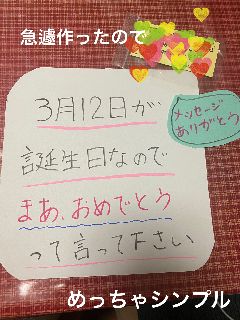 急遽作ったので
3月12日が
メッセージ
ありがとう
誕生日なので
まあ、おめでとう
って言って下さい
めっちゃシンプル